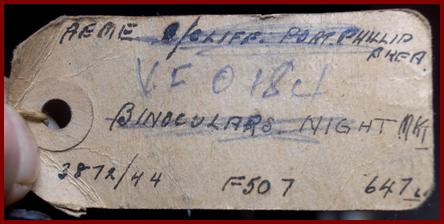 AEME O/CLIFF. PORT. PHILLIP
AREA.
V.F 0184
BINOCULARS. NIGHT MK1
3872/44 F507 647